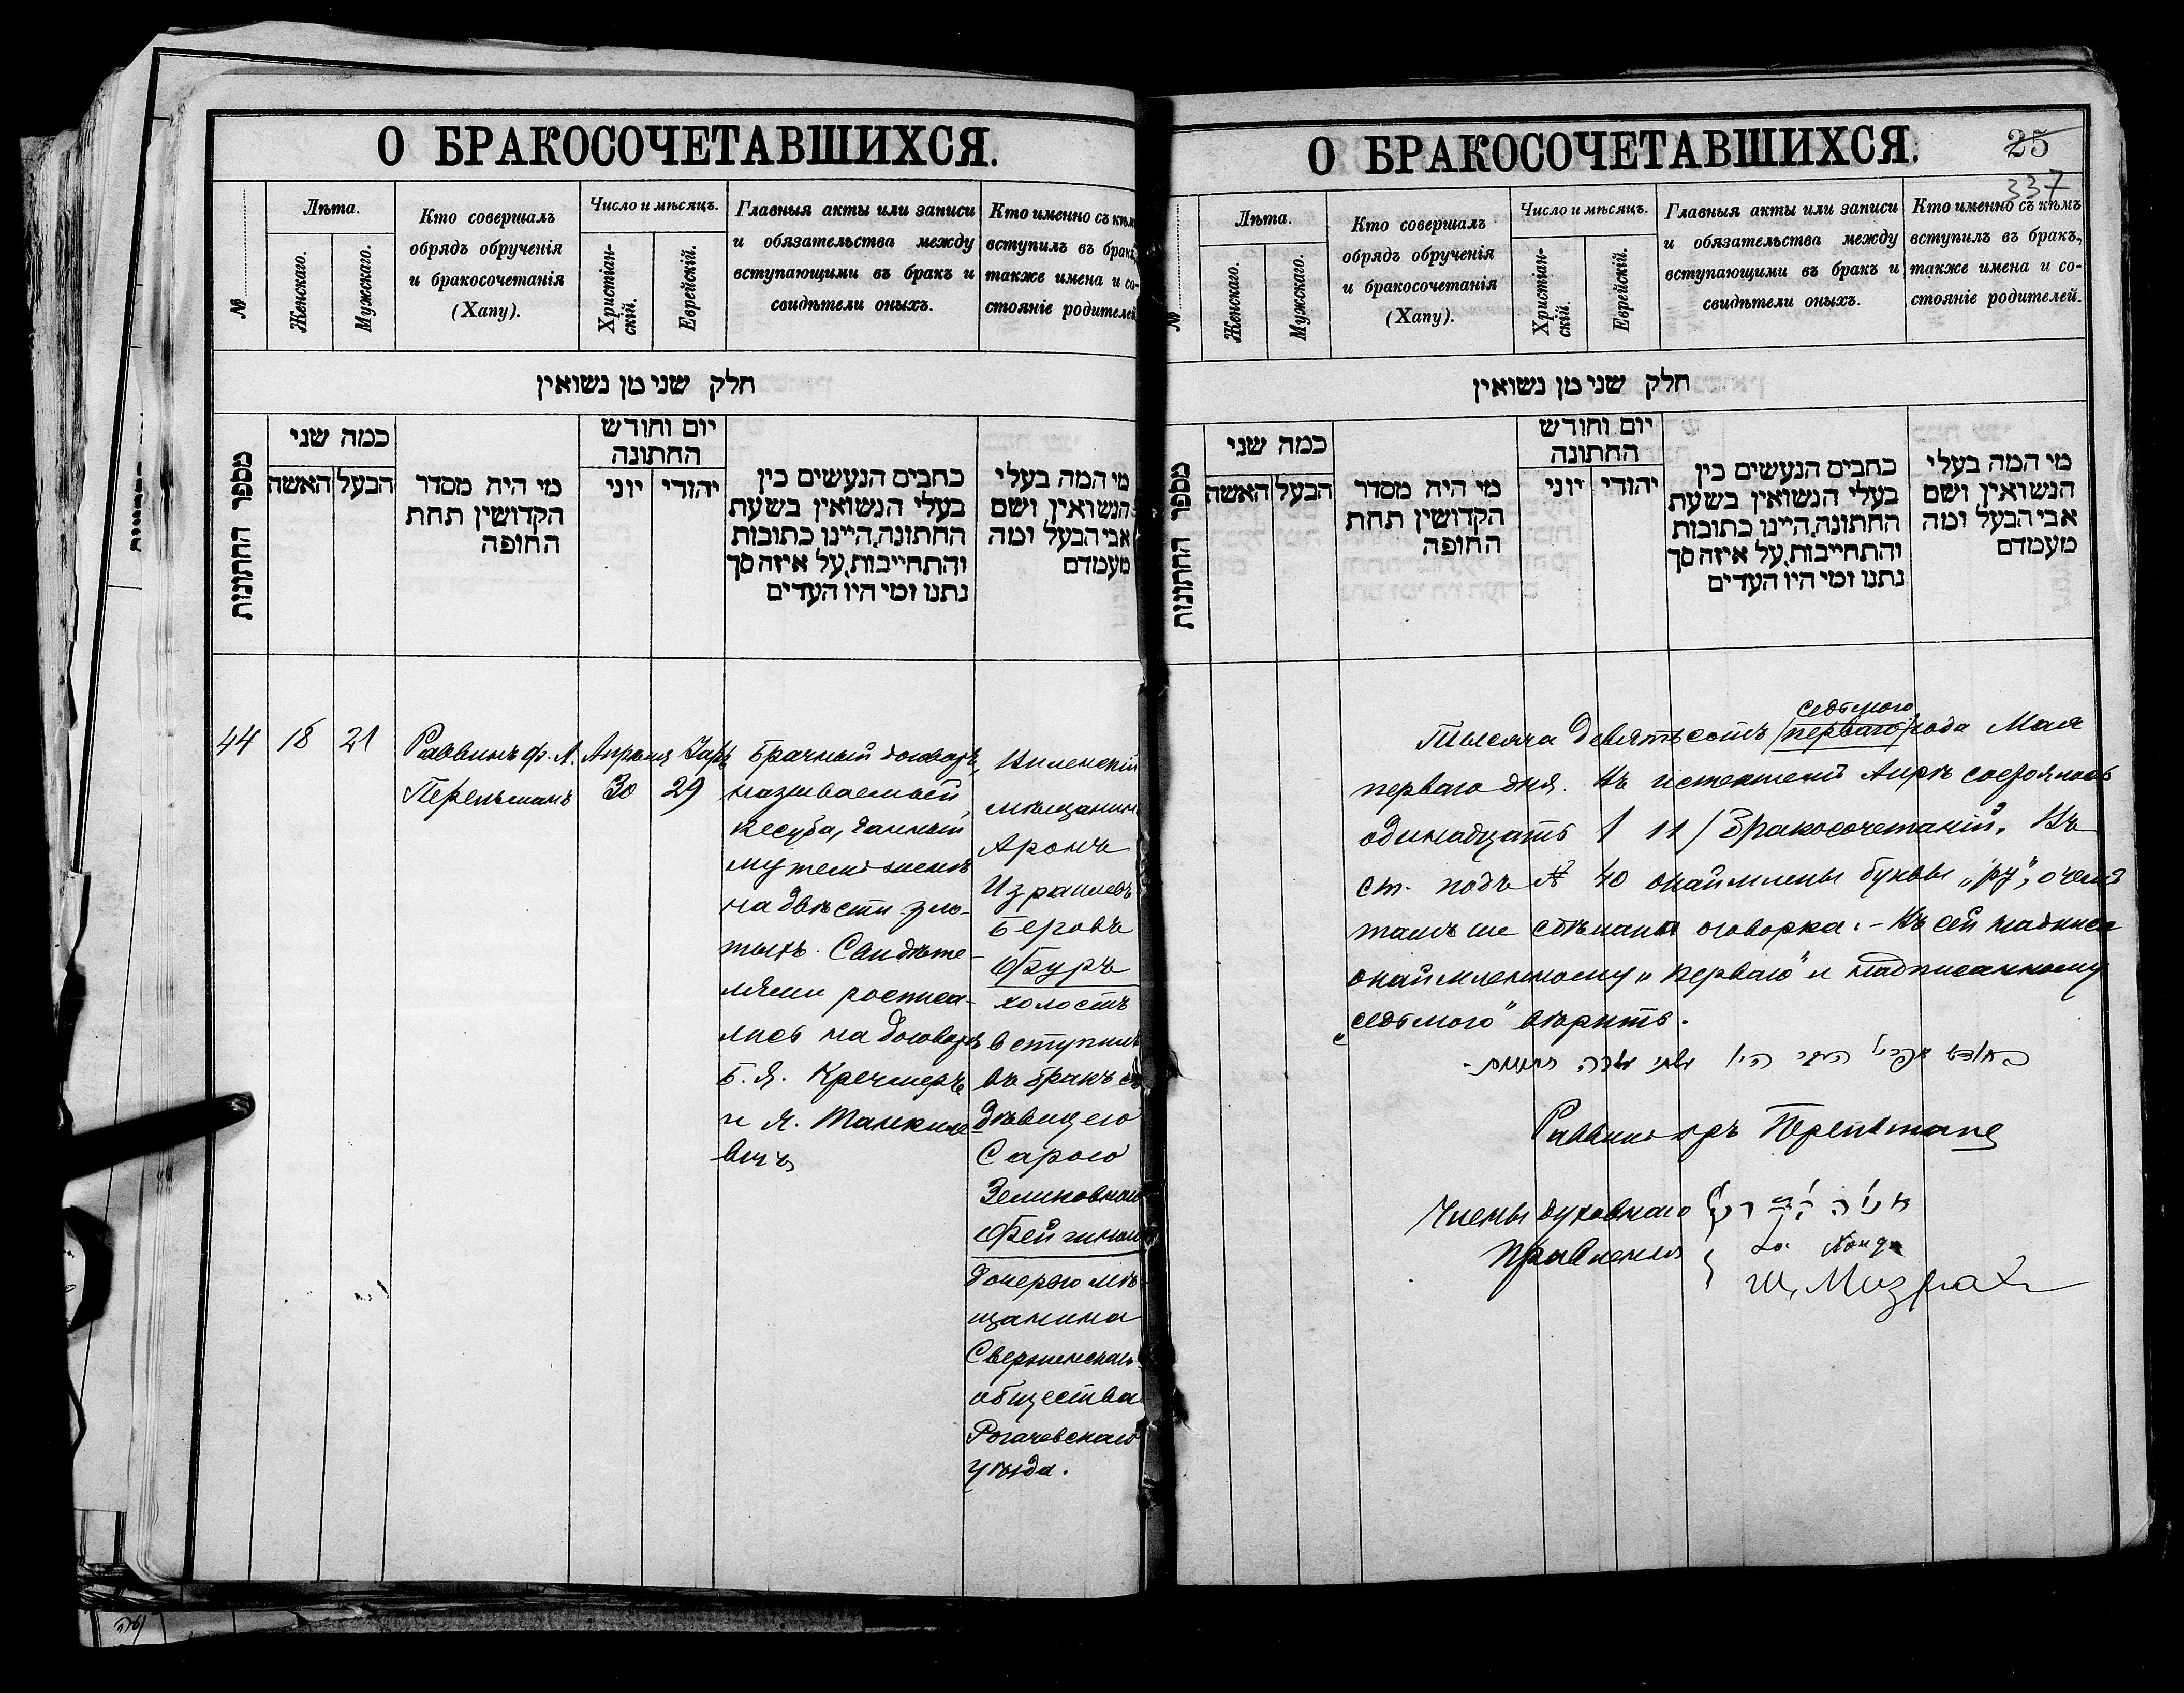 О БРАКОСОЧЕТАВШИХСЯ.
№
Лѣта.
Женскаго.
Мужскаго.
Кто совершалъ
обрядъ обрученія
и бракосочетанія
(Хапу).
Число и мѣсяцъ.
Христіан-
скій.
Еврейскій.
Главныя акты или записи
и обязательства между
вступающими въ бракъ и
свидѣтели оныхъ.
Кто именно съ кѣмъ
вступилъ въ бракъ,
также имена и со-
стояніе родителей
חלק שני מן נשואין
מספר החתונות
כמה שני
האשה
הבעל
מי היה מסדר
הקדושין תחת
החופה
יום וחודש
החתונה
יוני
יהודי
כתבים הנעשים בין
בעלי הנשואין בשעת
החתונה, היינו כתובות
והתחייבות, על איזה סך
נתנו ומי היו העדים
מי המה בעלי
הנשואין ושם
אבי הבעל ומה
מעמדם
44
18
21
Раввинъ ф. А.
Перельманъ
Апрѣля
30
29
Брачный договоръ,
называемый
кесуба, данный
мужемъ женѣ
на двѣсти зло-
тыхъ. Свидѣте-
лями росписа-
лись на договорѣ
Б. Я. Кречмеръ
и Я. Манкиле
вичъ
Виленскій
мѣщанинъ
Аронъ
Израилевъ
Беровъ
холостъ
вступилъ
въ бракъ съ
дѣвицею
Сарою
Зеликовною
Фейгиною
дочерью мѣ-
щанина
Свержинскаго
общества
Рогачевскаго
уѣзда.
О БРАКОСОЧЕТАВШИХСЯ.
25
337
№
Лѣта.
Женскаго.
Мужскаго.
Кто совершалъ
обрядъ обрученія
и бракосочетанія
(Хапу).
Число и мѣсяцъ.
Христіан-
скій.
Еврейскій.
Главныя акты или записи
и обязательства между
вступающими въ бракъ и
свидѣтели оныхъ.
Кто именно съ кѣмъ
вступилъ въ бракъ,
также имена и со-
стояніе родителей.
חלק שני מן נשואין
מספר החתונות
כמה שני
האשה
הבעל
מי היה מסדר
הקדושין תחת
החופה
יום וחודש
החתונה
יוני
יהודי
כתבים הנעשים בין
בעלי הנשואין בשעת
החתונה, היינו כתובות
והתחייבות, על איזה סך
נתנו ומי היו העדים
מי המה בעלי
הנשואין ושם
אבי הבעל ומה
מעמדם
седьмого
Тысяча девятьсотъ /перваго/ года Мая
перваго дня. Въ истекшемъ Апрѣлѣ состоялось
одинадцать / 11 / бракосочетаній. Въ
ст. подъ № 40 окаймлены буквы „ру", о чемъ
тамъ же сдѣлана оговорка. - Въ сей надписи
окаймленному „перваго" и надписанному
„седьмого" вѣрить.
Раввинъ Перельманъ
Члены духовнаго
правленія
Ш. Мизрахи